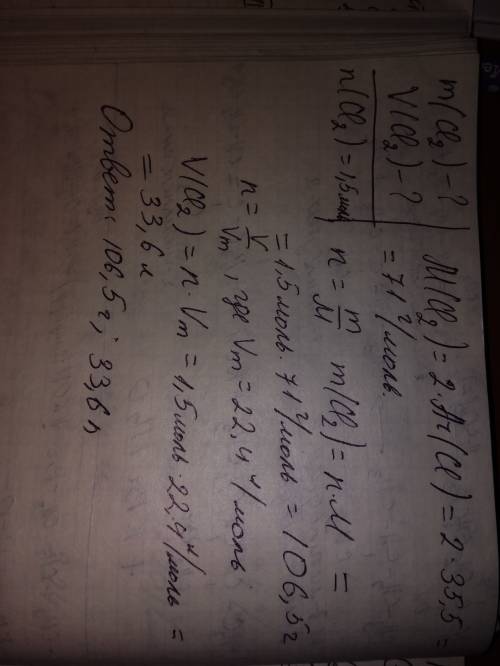 m(Cl₂) - ? | M(Cl₂) = 2·Ar(Cl) = 2·35,5 =
V(Cl₂) - ? | = 71 г/моль.
n(Cl₂) = 1,5 моль | n = m/M m(Cl₂) = n·M =
= 1,5 моль · 71 г/моль = 106,5 г
n = V/Vm, где Vm = 22,4 л/моль
V(Cl₂) = n·Vm = 1,5 моль 22,4 л/моль =
= 33,6 л
Ответ: 106,5 г; 33,6 л